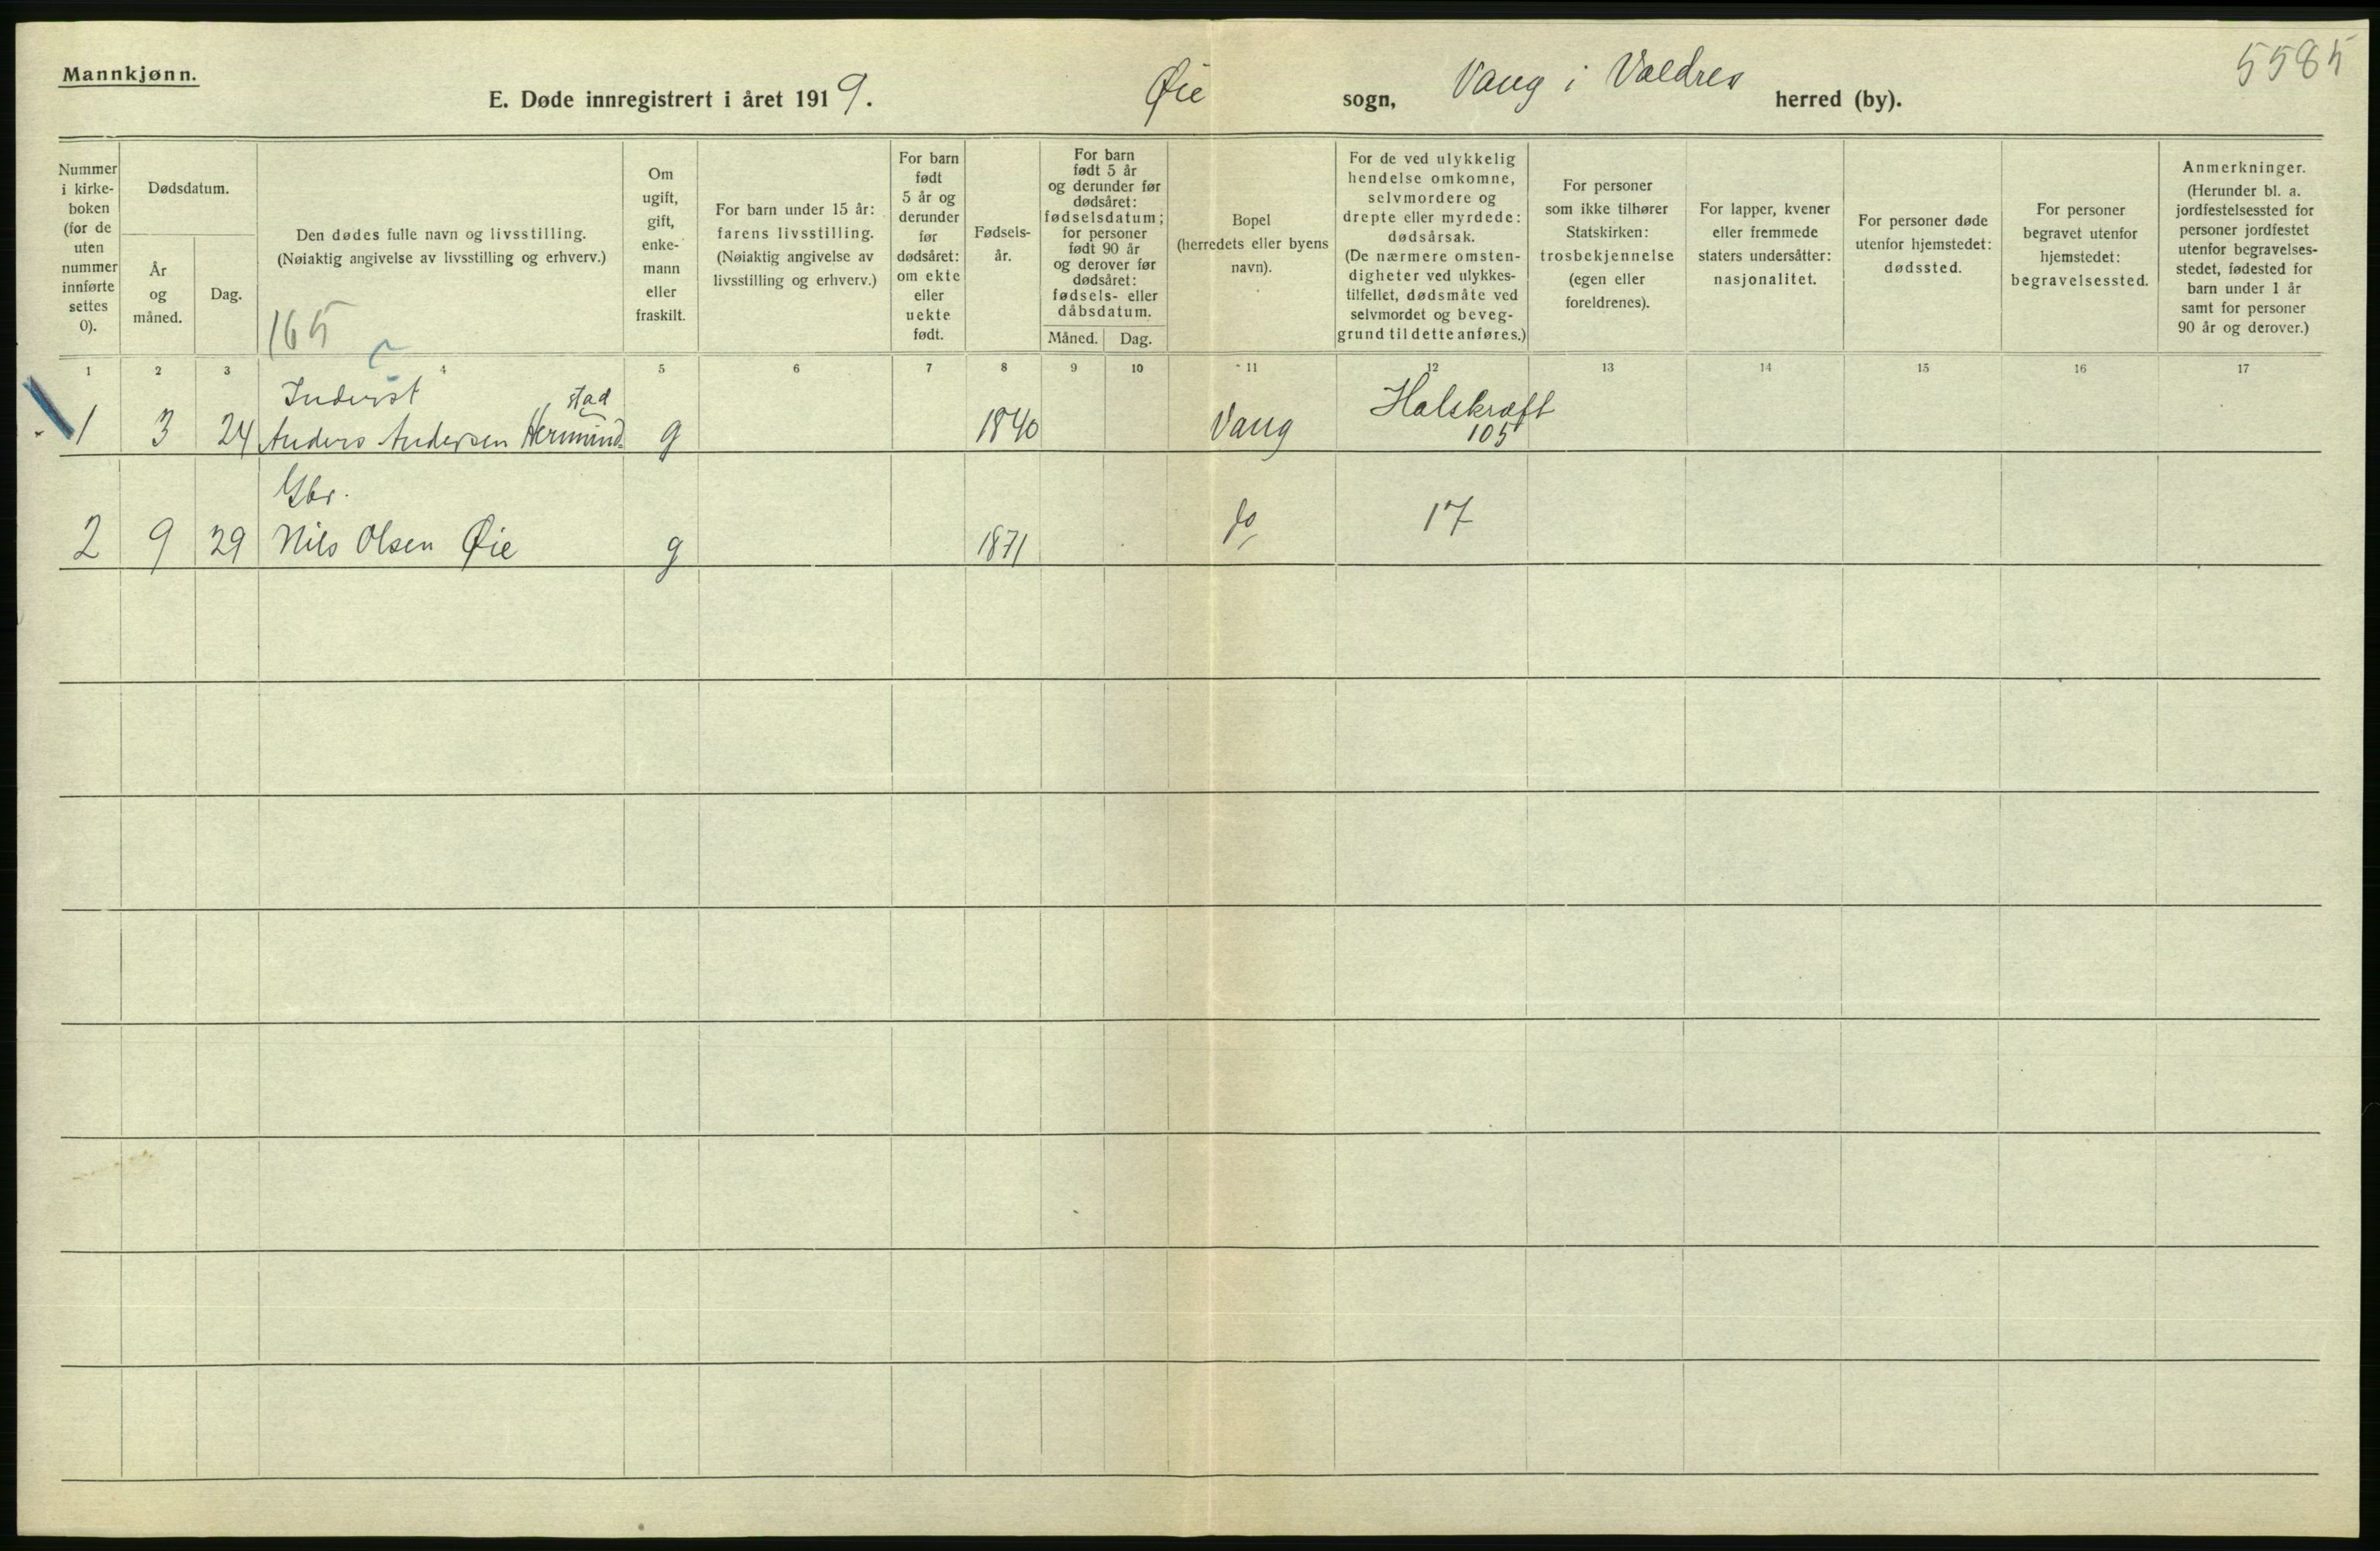 Mannkjønn.
5585
E. Døde innregistrert i året 1919. Øie sogn, Vang i Valdres herred (by).
Nummer i kirke- boken (for de uten nummer innførte settes 0).
Dødsdatum.
År og måned.
Dag.
Den dødes fulle navn og livsstilling.
(Nøiaktig angivelse av livsstilling og erhverv.)
165
Om ugift, gift, enke- mann eller fraskilt.
For barn under 15 år: farens livsstilling. (Nøiaktig angivelse av livsstilling og erhverv.)
For barn født 5 år og derunder før dødsåret: om ekte eller uekte født.
Fødsels- år.
For barn født 5 år og derunder før dødsåret: fødselsdatum; for personer født 90 år og derover før dødsåret: fødsels- eller dåbsdatum.
Måned. Dag.
Bopel (herredets eller byens navn).
For de ved ulykkelig hendelse omkomne, selvmordere og drepte eller myrdede: dødsårsak. (De nærmere omsten- digheter ved ulykkes- tilfellet, dødsmåte ved selvmordet og beveg- grund til dette anføres.)
For personer som ikke tilhører Statskirken: trosbekjennelse (egen eller foreldrenes).
For lapper, kvener eller fremmede staters undersåtter: nasjonalitet.
For personer døde utenfor hjemstedet: dødssted.
For personer begravet utenfor hjemstedet: begravelsessted.
Anmerkninger. (Herunder bl. a. jordfestelsessted for personer jordfestet utenfor begravelses- stedet, fødested for barn under 1 år samt for personer 90 år og derover.)
1 2 3 4 5 6 7 8 9 10 11 12 13 14 15 16 17
Inderst stad Halskræft
1 3 24 Anders Andersen Hermind- g 1840 Vang 105
Gbr.
2 9 29 Nils Olsen Øie g 1871 do 17